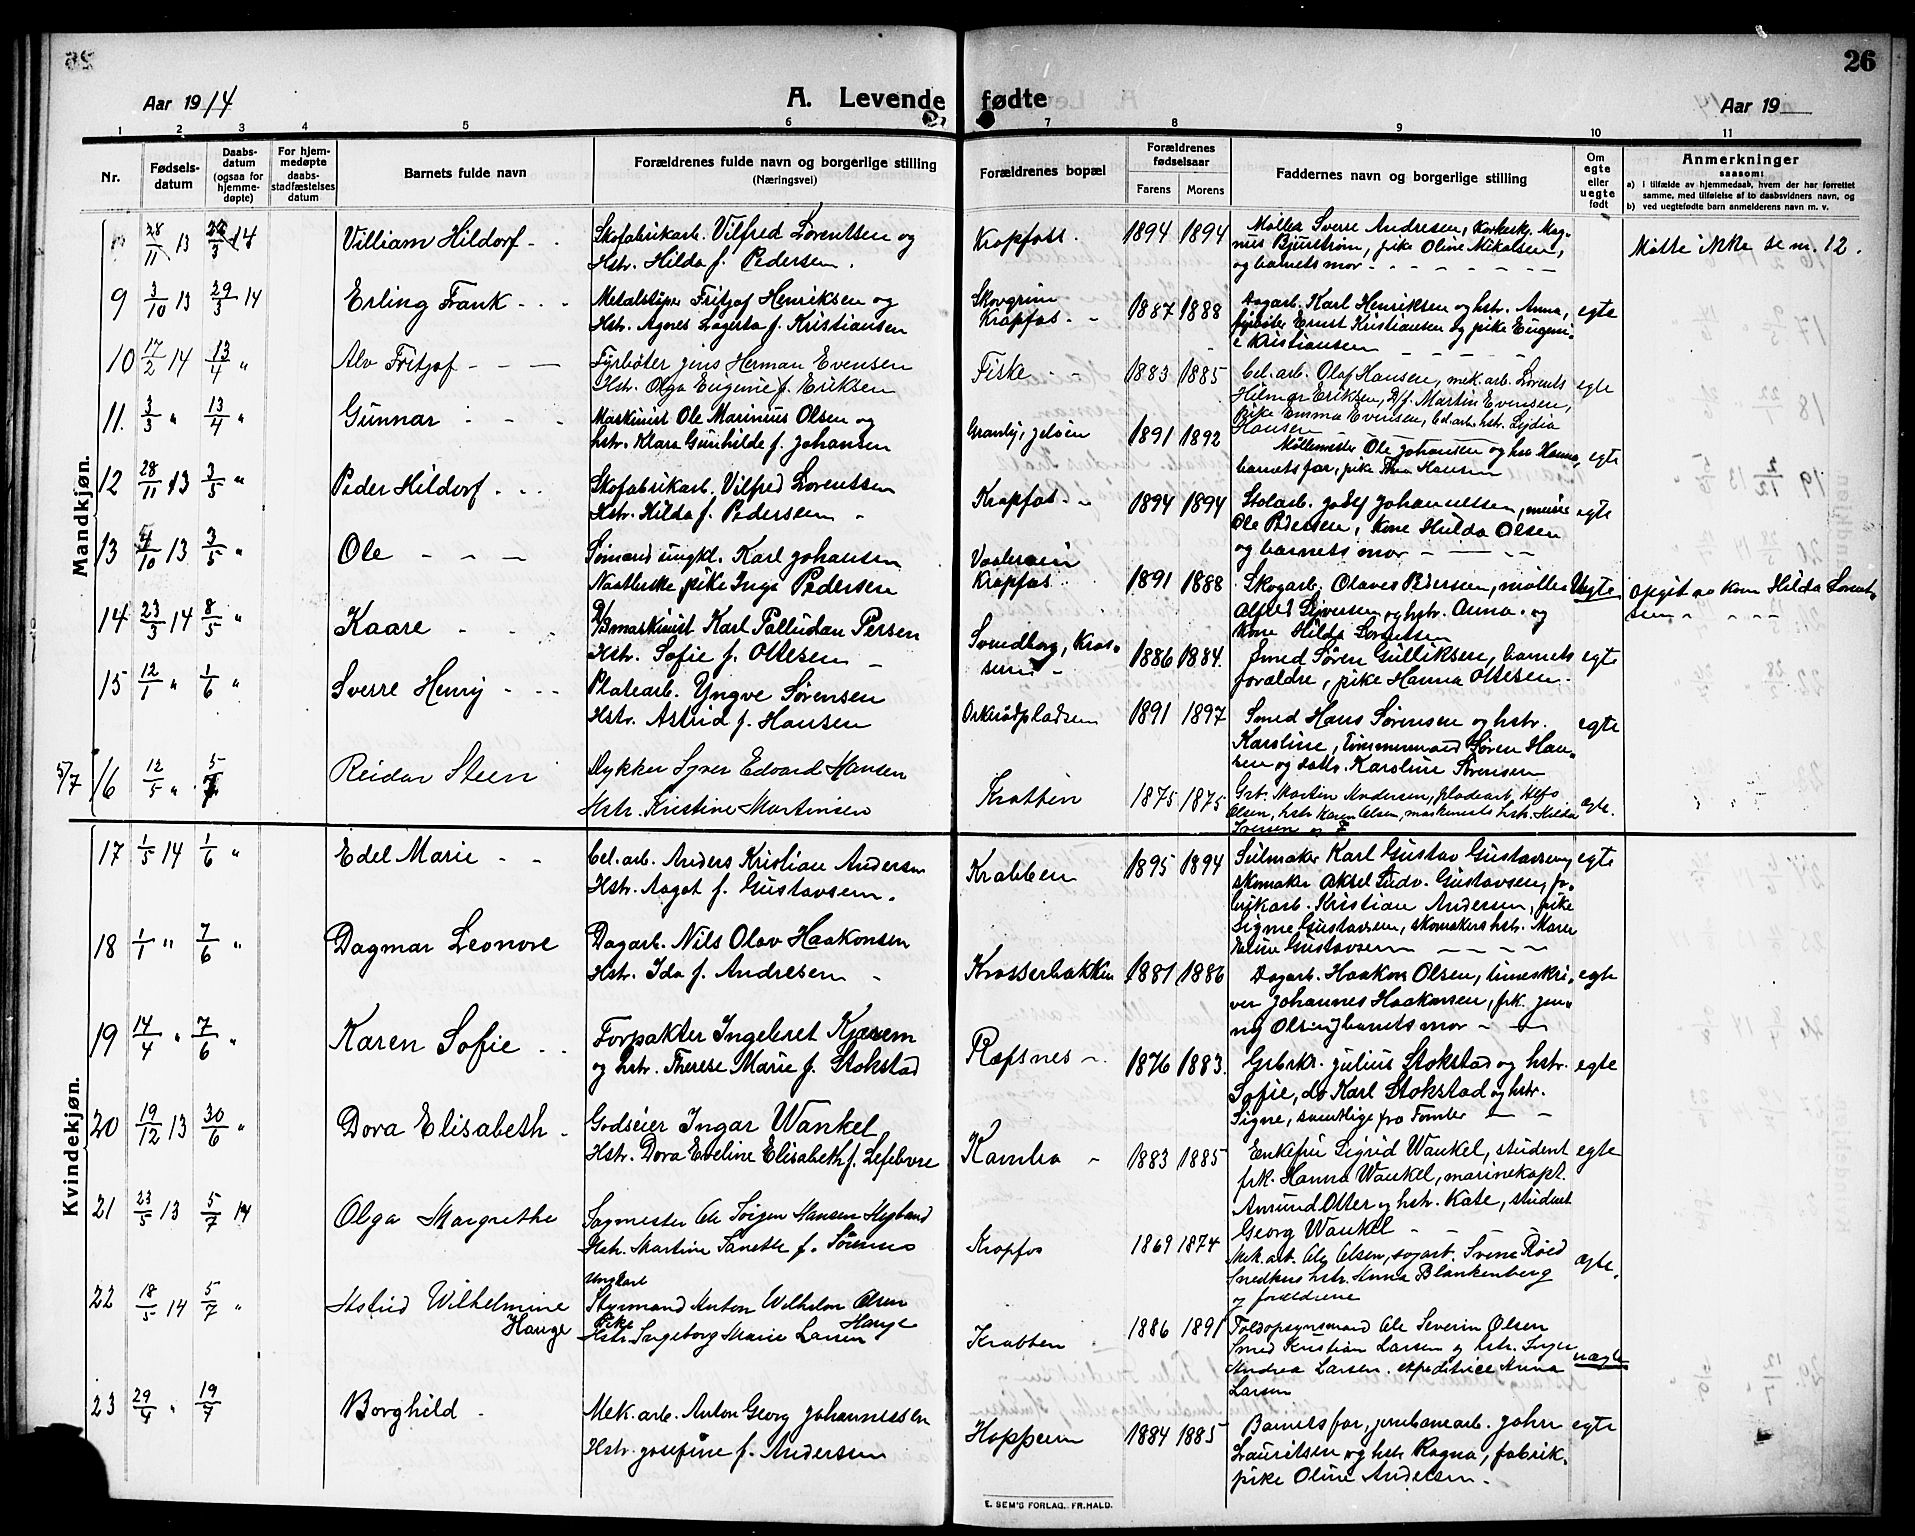 26
Aar 1914
A. Levende fødte
Aar 19
1 2 3 4 5 6 7 8 9 10 11
Nr.
Fødsels-
datum
Daabs-
datum
(ogsaa for
hjemme-
døpte)
For hjem-
medøpte
daabs-
stadfæstelses
datum
Barnets fulde navn
Forældrenes fulde navn og borgerlige stilling
(Næringsvei)
Forældrenes bopæl
Forældrenes
fødselsaar
Farens Morens
Faddernes navn og borgerlige stilling
Om
egte
eller
uegte
født
Anmerkninger
saasom:
a) i tilfælde av hjemmedaab, hvem der har forrettet
samme, med tilføielse af to daabsvidners navn, og
b) ved uegtefødte barn anmelderens navn m. v.
Mandkjøn.
28/11 13 22/3 14 Villiam Hildorf
Skofabrikarb. Vilfred Lorentsen og
Hstr. Hilda f. Pedersen.
Kropfoss. 1894 1894
Møller Sverre Andresen, Korkesk. Mag-
nus Bjurstrøm, pike Oline Mikalsen,
og barnets mor
Møtte ikke se nr. 12.
9 3/10 13 29/3 14 Erling Frank
Metalstøper Fritjof Henriksen og
Hstr. Agnes Lagerta f. Kristiansen
Skovgrim
Kropfos 1887 1888
Dagarb. Karl Henriksen og hstr. Anna,
fyrbøter Ernst Kristiansen og pike Eugeni-
e Kristiansen
egte
10 17/2 14 13/4 " Alv Fritjof
Fyrbøter Jens Herman Evensen
Hstr. Olga Eugenie f. Eriksen
Fiske 1883 1885
Cel. arb. Olaf Hansen, mek. arb. Lorents
Hilmar Eriksen, D/f. Martin Evensen,
pike Emma Evensen, Cel. arb. hstr. Lydia
Hansen
egte
11. 3/3 " 13/4 " Gunnar
Maskinist Ole Marinius Olsen og
hstr. Klara Gunhilde f. Johansen
Granly, Jeløen 1891 1892
Møllemester Ole Johansen og hu Hanna,
barnets far, pike Thea Hansen
egte
12 28/11 13 3/5 " Peder Hildorf
Skofabrikarb. Vilfred Lorentsen
Hstr. Hilda f. Pedersen
Kropfos 1894 1894
Stolarb. Josef Johannessen, murer
Ole Pedersen, kone Hulda Olsen
og barnets mor
egte
13 4/10 13 3/5 " Ole
Sømand ungkl. Karl Johansen
pike Inga Pedersen
Vaalerveien
Kropfos 1891 1888
Skogarb. Olaves Pedersen, møller
Alfred Syversen og hstr. Anna og
kone Hilda Lorentsen
Uegte
opgit av kone Hilda Lorent-
sen
14 23/3 14 8/5 " Kaare
D/Bmaskinist Karl Palludan Persen
Hstr. Sofie f. Ottesen
Svendborg, Kros-
sern 1886 1884.
Smed Søren Gulliksen, barnets
forældre, pike Hanna Ottesen.
egte
15 12/1 " 1/6 " Sverre Henry
Platearb. Yngve Sørensen
Hstr. Astrid f. Hansen
Orkerødpladsen 1891 1897
Smed Hans Sørensen og hstr.
Karoline, tømmermand Søren Han-
sen og datter Karoline Sørensen
egte
5/7 16 12/5 " 5/7 Reidar Steen
Dykker Syver Edvard Hansen
Hstr. Kristine Martinsen
Krabben 1875 1875
Grb. Martin Andersen, pladearb. Alfs
Olsen, hstr Karen Olsen, maskinists hstr. Hilda
Iversen og F
egte.
Kvindekjøn.
17 1/5 14 1/6 " Edel Marie
Cel. arb. Anders Kristian Andersen
Hstr. Aagot f. Gustavsen.
Krabben 1895 1894
Seilmaker Karl Gustav Gustavsen,
skomaker Aksel Ludv. Gustavsen, fa-
brikarb. Kristian Andersen, pike
Signe Gustavsen, skomakers hstr. Maren
Eline Gustavsen
egte
18 1/1 " 7/6 " Dagmar Leonore
Dagarb. Nils Olav Haakonsen
Hstr. Ida f. Andresen
Krosserbakken 1881 1886
Dagarb. Haakon Olsen, timeskri-
ver Johannes Haakonsen, frk. Jen-
ny Olsen, barnets mor
egte
19 14/4 " 7/6 " Karen Sofie
Forpakter Ingebret Kjærem
og hstr. Therese Marie f. Stokstad
Refsnes 1876 1883.
Grbrkr. Julius Stokstad og hstr.
Sofie, do Karl Stokstad og hstr.
Signe, samtlige fra Tomter
egte
20 19/12 13 30/6 " Dora Elisabeth
Godseier Ingar Wankel
Hstr. Dora Eveline Elisabeth f. Lefebvre
Kambo 1883 1885
Enkefru Sigrid Wankel, student
frk. Hanna Wankel, marinekapt.
Amund Otter og hstr. Kate, student
Georg Wankel
egte
21 23/5 13 5/7 14 Olga Margrethe
Sagmester Ole Jørgen Hansen Høgbrand
Hstr. Martine Tanette f. Sørensen
Kropfos 1869 1874
Mek. arb. Ole Olsen, sagarb. Svene Røed
Snedkers hstr. Anna Blankenberg
og forældrene
egte.
22 18/5 14 5/7 " Astrid Wilhelmine
Hauge
Ungkarl
Styrmand Anton Wilhelm Olsen
Hauge
Pike
Hstr. Ingeborg Marie Larsen
Krabben 1886 1891
Toldopsynsmand Ole Severin Olsen
Smed Kristian Larsen og hstr. Inger
Andrea Larsen, expeditrice Anna
Larsen
uegte
23 29/4 " 19/7 Borghild
Mek. arb. Anton Georg Johannessen
Hstr. Josefine f. Andersen
Hoppern 1884 1885
Barnets far, jernbanearb. John
Lauritsen og hstr Ragna, fabrik-
pike Oline Andersen
egte
E. SEM'S FORLAG, FR.HALD.